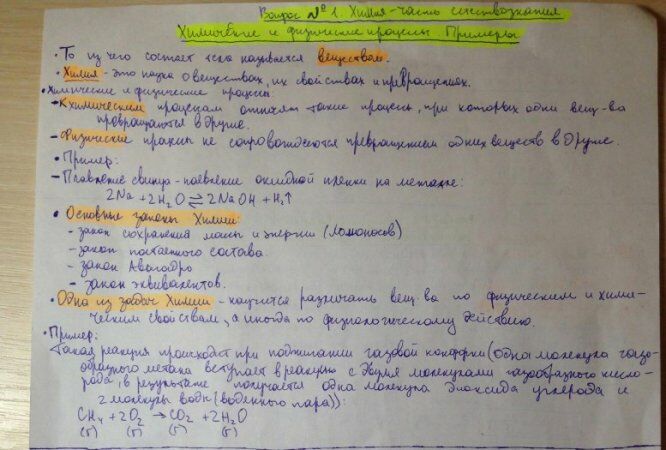 Вопрос №1. Химия - часть естествознания
Химические и физические процессы. Примеры
• То из чего состоит тело называется веществом.
• Химия - это наука о веществах, их свойствах и превращениях.
• Химические и физические процессы:
- К химическим процессам относят такие процессы, при которых одни вещ-ва
превращаются в другие.
- Физические процессы не сопровождаются превращением одних веществ в другие.
• Пример:
- Плавление свинца - появление оксидной пленки на металле:
2Na + 2H₂O ⇌ 2NaOH + H₂↑
• Основные законы Химии:
- закон сохранения массы и энергии (Ломоносов)
- закон постоянного состава
- закон Авогадро
- закон эквивалентов.
• Одна из задач Химии - научится различать вещ-ва по физическим и хими-
ческим свойствам, а иногда по физиологическому действию.
• Пример:
Такая реакция происходит при поджигании газовой конфорки (одна молекула газо-
образного метана вступает в реакцию с двумя молекулами газообразного кисло-
рода, в результате получается одна молекула диоксида углерода и
2 молекулы воды (водяного пара)):
CH₄ + 2O₂ → CO₂ + 2H₂O
(г) (г) (г) (г)